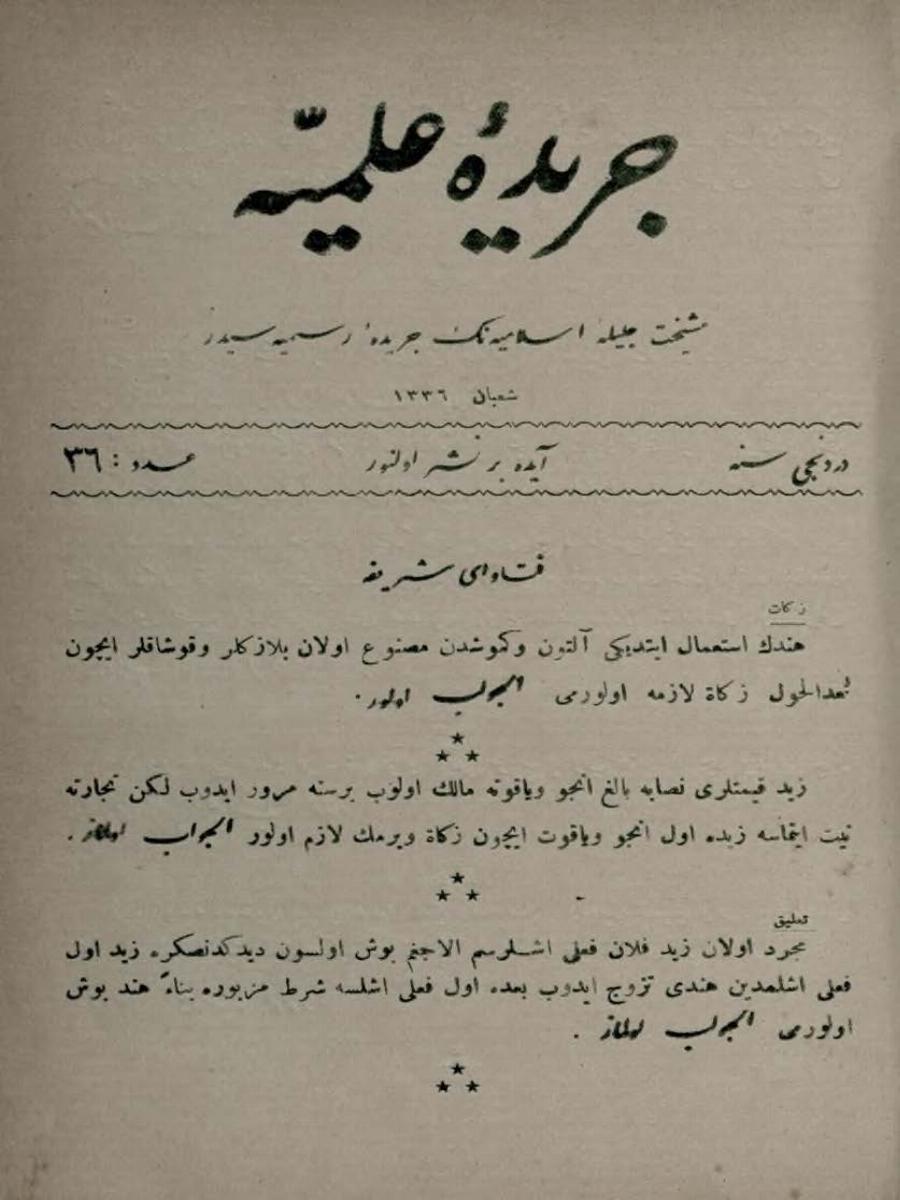 جريدۀ علميّه
مشيخت جليلۀ اسلاميه نك جريدۀ رسميه سيدر
شعبان ١٣٣٦
دردنجى سنه آيده بر نشر اولنور عدد : ٣٦
فتاواى شريفه
زكات
هندك استعمال ايتديكى آلتون وكموشدن مصنوع اولان بلازكلر وقوشاقلر ايچون
بعدالحول زكاة لازمه اولورمى الجواب اولور .
زيد قيمتلرى نصابه بالغ انجو وياقوته مالك اولوب برسنه مرور ايدوب لكن تجارته
نيت ايتماسه زيده اول انجو وياقوت ايچون زكاة ويرمك لازم اولور الجواب اولماز .
تعليق
مجرد اولان زيد فلان فعلى اشلرسم الاجغم بوش اولسون ديدكدنصكره زيد اول
فعلى اشلمدين هندى تزوج ايدوب بعده اول فعلى اشلسه شرط مزبوره بناءً هند بوش
اولورمى الجواب اولماز .